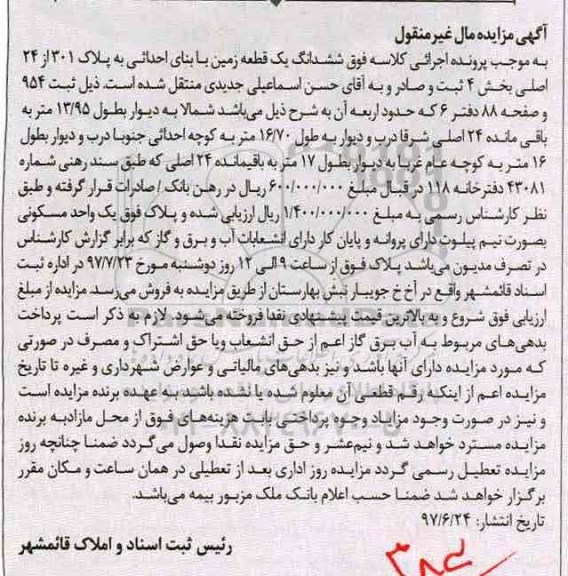 آگهی مزایده مال غیرمنقول
به موجب پرونده اجرائی کلاسه فوق ششدانگ یک قطعه زمین با بنای احداثی به پلاک ۳۰۱ از ۲۴
اصلی بخش ۴ ثبت و صادر و به آقای حسن اسماعیلی جدیدی منتقل شده است. ذیل ثبت ۹۵۴
و صفحه ۸۸ دفتر ۶ که حدود اربعه آن به شرح ذیل می‌باشد شمالا به دیوار بطول ۱۳/۹۵ متر به
باقی مانده ۲۴ اصلی شرقا درب و دیوار به طول ۱۶/۷۰ متر به کوچه احداثی جنوبا درب و دیوار بطول
۱۶ متر به کوچه عام غربا به دیوار بطول ۱۷ متر به باقیمانده ۲۴ اصلی که طبق سند رهنی شماره
۴۳۰۸۱ دفترخانه ۱۱۸ در قبال مبلغ ۶۰۰/۰۰۰/۰۰۰ ریال در رهن بانک / صادرات قرار گرفته و طبق
نظر کارشناس رسمی به مبلغ ۱/۴۰۰/۰۰۰/۰۰۰ ریال ارزیابی شده و پلاک فوق یک واحد مسکونی
بصورت نیم پیلوت دارای پروانه و پایان کار دارای انشعابات آب و برق و گاز که برابر گزارش کارشناس
در تصرف مدیون می‌باشد پلاک فوق از ساعت ۹ الی ۱۲ روز دوشنبه مورخ ۹۷/۷/۲۳ در اداره ثبت
اسناد قائمشهر واقع در آخ خ جویبار نبش بهارستان از طریق مزایده به فروش می‌رسد. مزایده از مبلغ
ارزیابی فوق شروع و به بالاترین قیمت پیشنهادی نقدا فروخته می شود. لازم به ذکر است پرداخت
بدهی‌های مربوط به آب برق گاز اعم از حق انشعاب ویا حق اشتراک و مصرف در صورتی
که مورد مزایده دارای آنها باشد و نیز بدهی‌های مالیاتی و عوارض شهرداری و غیره تا تاریخ
مزایده اعم از اینکه رقم قطعی آن معلوم شده یا نشده باشد، به عهده برنده مزایده است
و نیز در صورت وجود مازاد وجوه پرداختی بابت هزینه‌های فوق از محل مازادبه برنده
مزایده مسترد خواهد شد و نیم‌عشر و حق مزایده نقدا وصول می‌گردد ضمنا چنانچه روز
مزایده تعطیل رسمی گردد مزایده روز اداری بعد از تعطیلی در همان ساعت و مکان مقرر
برگزار خواهد شد ضمنا حسب اعلام بانک ملک مزبور بیمه می‌باشد.
تاریخ انتشار: ۹۷/۶/۲۴
رئیس ثبت اسناد و املاک قائمشهر